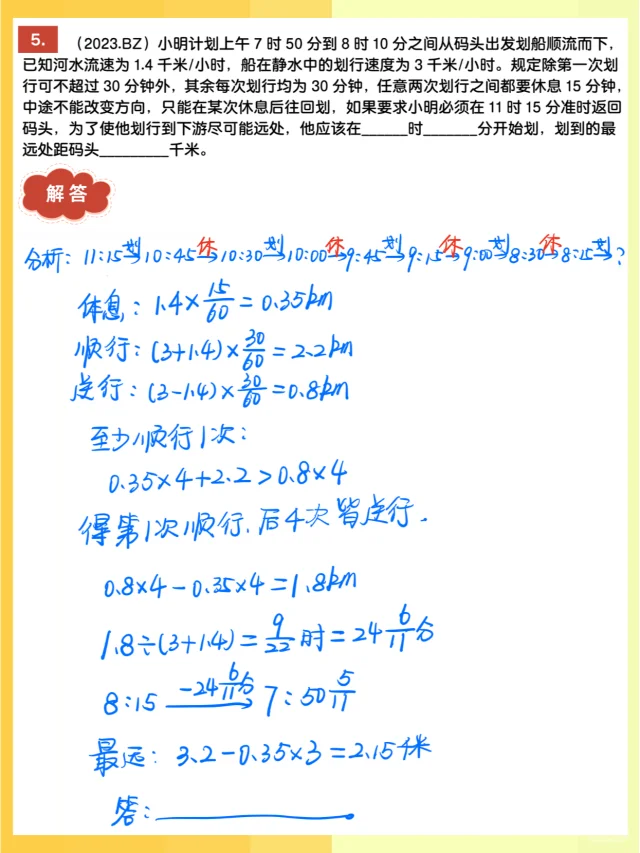 5. （2023.BZ）小明计划上午 7 时 50 分到 8 时 10 分之间从码头出发划船顺流而下，
已知河水流速为 1.4 千米/小时，船在静水中的划行速度为 3 千米/小时。规定除第一次划
行可不超过 30 分钟外，其余每次划行均为 30 分钟，任意两次划行之间都要休息 15 分钟，
中途不能改变方向，只能在某次休息后往回划，如果要求小明必须在 11 时 15 分准时返回
码头，为了使他划行到下游尽可能远处，他应该在______时_______分开始划，划到的最
远处距码头_________千米。
解答
分析：11:15 划→ 10:45 休→ 10:30 划→ 10:00 休→ 9:45 划→ 9:15 休→ 9:00 划→ 8:30 休→ 8:15 划→ ?
休息：1.4×15/60=0.35km
顺行：(3+1.4)×30/60=2.2km
逆行：(3-1.4)×30/60=0.8km
至少顺行1次：
0.35×4+2.2>0.8×4
得第1次顺行，后4次皆逆行．
0.8×4-0.35×4=1.8km
1.8÷(3+1.4)=9/22时=24 6/11分
8:15 -24 6/11分→ 7:50 5/11
最远：3.2-0.35×3=2.15千米
答：